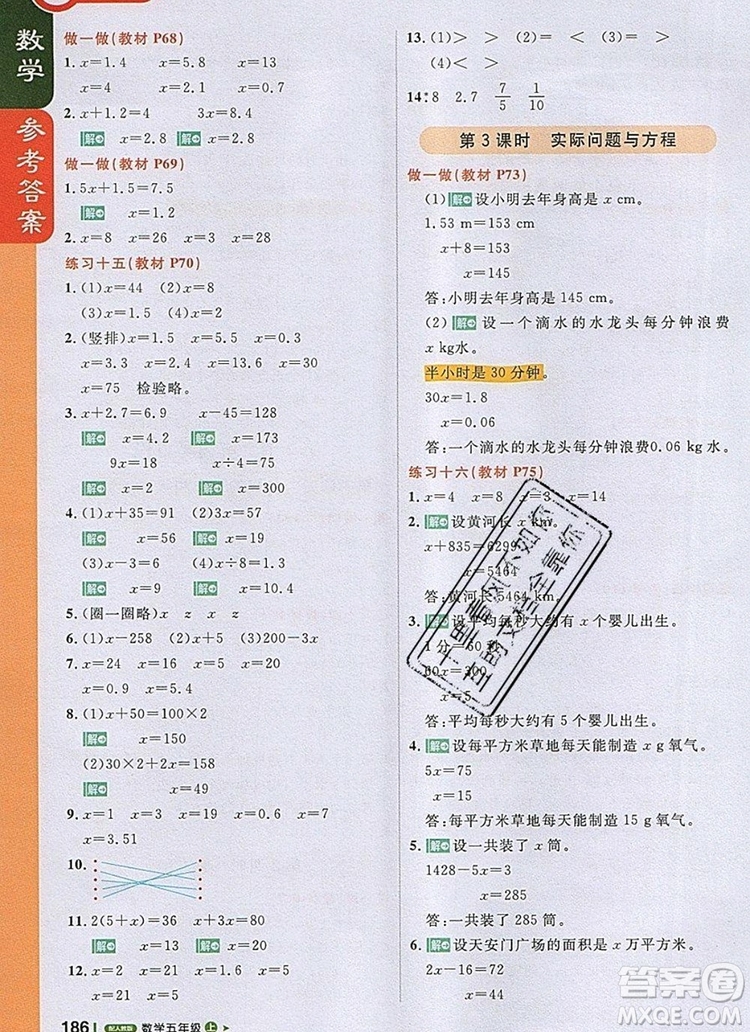 数学
参考答案
做一做(教材 P68)
1. x=1.4 x=5.8 x=13
x=4 x=80 x=7
2. x+1.2=4 3x=8.4
解 x=2.8 解 x=2.8
做一做(教材 P69)
1. 5x+1.5=7.5
解 x=1.2
2. x=8 x=26 x=3 x=28
练习十五(教材 P70)
1. (1)x=44 (2)x=8
(3)x=1.5 (4)x=2
2. (竖排)x=5.5 x=5 x=0.3
x=3.5 x=13.6 x=30
x=75 检验略。
3. x+2.7=6.9 x-45=128
解 x=4.2 解 x=173
9x=18 x÷4=75
解 x=2 解 x=300
4. (1)x+35=91 (2)3x=57
解 x=56 解 x=19
(3)x-6=3 (4)x÷8=1.3
解 x=9 解 x=10.4
5. (圈一圈略) x z x z
6. (1)x-258 (2)5x (3)200-3x
7. x=80 x=20 x=7
8. (1)x+50=200
解 x=150
(2)30×2+2x=158
解 x=49
9. x=1 x=3 x=1.6 x=7
x=3.51
10.
11. 2(5+x)=36 x+3x=80
解 x=13 解 x=20
12. x=2 x=21 x=52
186 配人教版 数学五年级 上
13. (1)> > (2)= = (3)< <
(4)< >
14. 8 2.7 7/5 1/10
第 3 课时 实际问题与方程
做一做(教材 P73)
(1)解 设小明去年身高是 x cm.
1.53 m=153 cm
x+8=153
x=145
答:小明去年身高是 145 cm.
(2)解 设一个滴水的水龙头每分钟浪费
x kg水。
半小时是 30 分钟。
30x=1.8
x=0.06
答:一个滴水的水龙头每分钟浪费0.06 kg水。
练习十六(教材 P75)
1. x=4 x=8 x=3 x=14
2. 解 设黄河长 x km.
x+835=6299
x=5464
答:黄河长 5464 km.
3. 解 设平均每秒大约有 x 个婴儿出生。
1 分=60 秒
60x=300
x=5
答:平均每秒大约有 5 个婴儿出生。
4. 解 设每平方米草地每天能制造 x g 氧气。
5x=75
x=15
答:每平方米草地每天能制造 15 g 氧气。
5. 解 设一共装了 x 筒。
1428-5x=3
x=285
答:一共装了 285 筒。
6. 解 设天安门广场的面积是 x 万平方米。
2x-16=72
x=44
答案圈
MXQE.COM